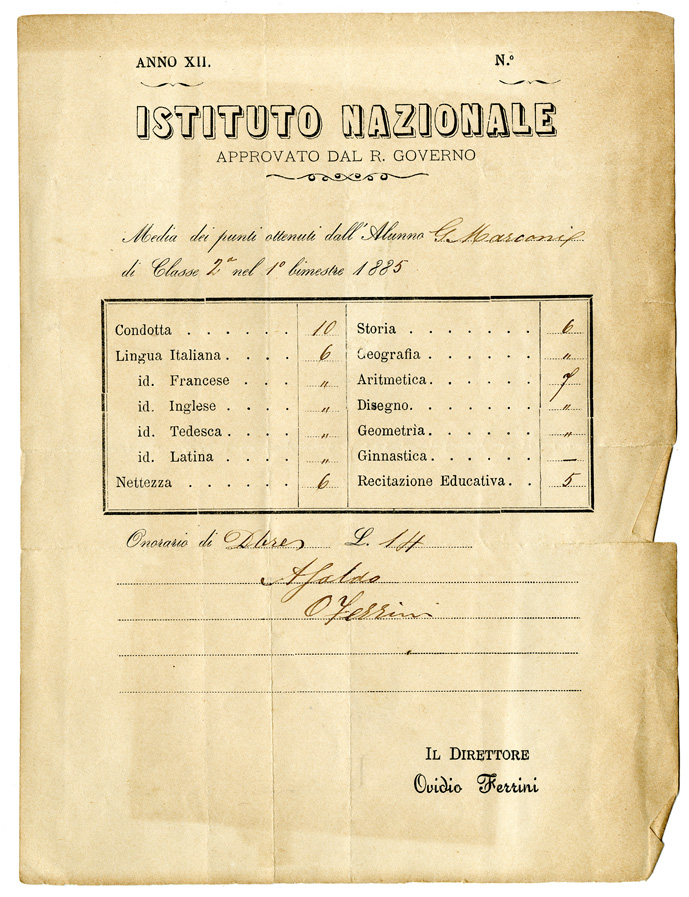 ANNO XII. N.º
ISTITUTO NAZIONALE
APPROVATO DAL R. GOVERNO
Media dei punti ottenuti dall'Alunno G Marconi
di Classe 2ª nel 1º bimestre 1885
Condotta . . . . . . 10 Storia . . . . . . . 6
Lingua Italiana . . . . 6 Geografia . . . . . . "
id. Francese . . . . " Aritmetica . . . . . . 7
id. Inglese . . . . " Disegno . . . . . . . "
id. Tedesca . . . . " Geometria . . . . . . "
id. Latina . . . . " Ginnastica . . . . . . —
Nettezza . . . . . . 6 Recitazione Educativa . . 5
Onorario di L. 14
A Saldo
O Ferrini
IL DIRETTORE
Ovidio Ferrini